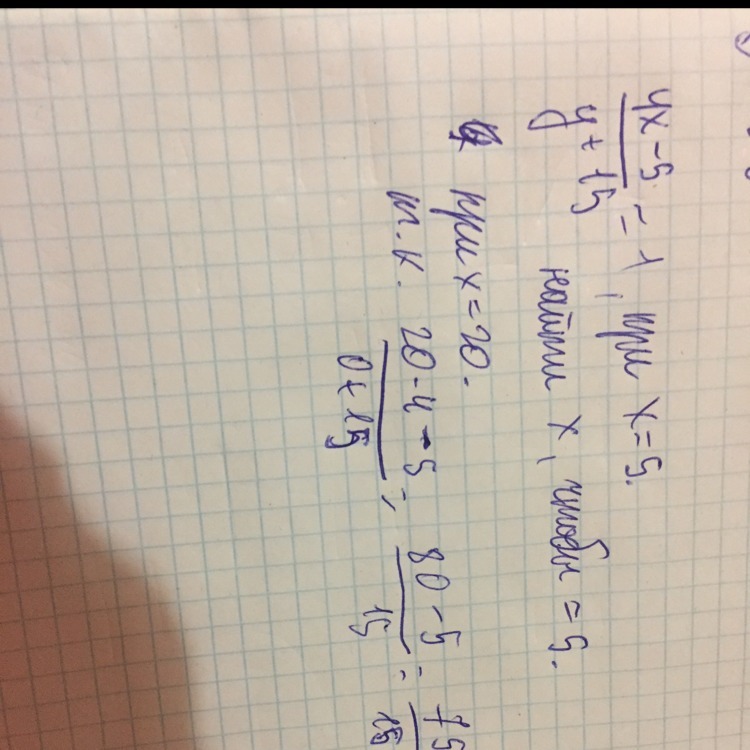 4x-5 / y+15 = 1, при x=5.
найти x, чтобы =5.
при x=20.
т.к. 20·4-5 / 0+15 = 80-5 / 15 = 75 / 15